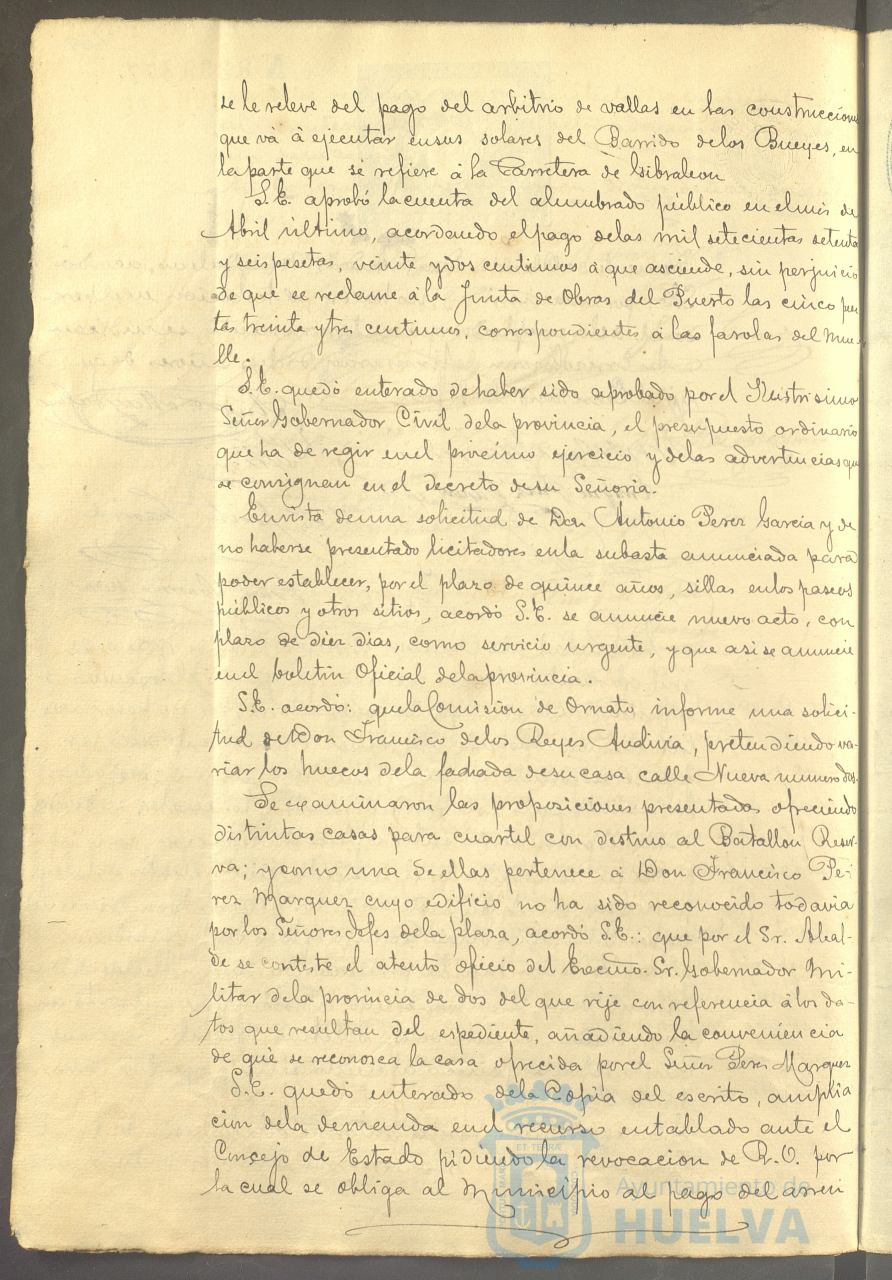 se le releve del pago del arbitrio de vallas en las construcciones
que vá á ejecutar en sus solares del Barrido de los Bueyes, en
la parte que se refiere á la Carretera de Gibraleon
S.E. aprobó la cuenta del alumbrado público en el mes de
Abril último, acordando el pago de las mil setecientas setenta
y seis pesetas, veinte y dos centimos á que asciende, sin perjuicio
de que se reclame á la Junta de Obras del Puerto las cinco pese
tas treinta y tres centimos, correspondientes á las farolas del Mue-
lle.
S.E. quedó enterado de haber sido aprobado por el Ilustrisimo
Señor Gobernador Civil de la provincia, el presupuesto ordinario
que ha de regir en el proximo ejercicio y de las advertencias que
se consignan en el decreto de su Señoria.
En vista de una solicitud de Don Antonio Perez Garcia y de
no haberse presentado licitadores en la subasta anunciada para
poder establecer, por el plazo de quince años, sillas en los paseos
públicos y otros sitios, acordó S.E. se anuncie nuevo acto, con
plazo de diez dias, como servicio urgente, y que asi se anuncie
en el boletin Oficial de la provincia.
S.E. acordó: que la Comision de Ornato informe una solici-
tud de Don Francisco de los Reyes Audivia, pretendiendo va-
riar los huecos de la fachada de su casa calle Nueva numero dos.
Se examinaron las proposiciones presentadas ofreciendo
distintas casas para cuartel con destino al Batallon Reser-
va; y como una de ellas pertenece á Don Francisco Pe-
rez Marquez cuyo edificio no ha sido reconocido todavia
por los Señores Jefes de la plaza, acordó S.E.: que por el Sr. Alcal-
de se conteste el atento oficio del Excmo. Sr. Gobernador Mi-
litar de la provincia de dos del que rije con referencia á los da-
tos que resultan del espediente, añadiendo la conveniencia
de que se reconosca la casa ofrecida por el Señor Perez Marquez
S.E. quedó enterado de la Copia del escrito, amplia
cion de la demanda en el recurso entablado ante el
Consejo de Estado pidiendo la revocacion de R.O. por
la cual se obliga al Municipio al pago del arren
Ayuntamiento de
HUELVA